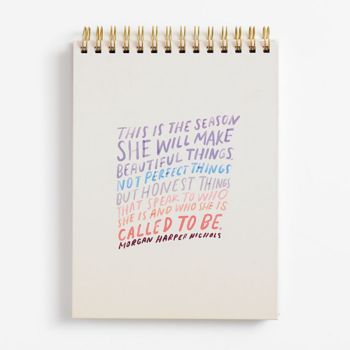 THIS IS THE SEASON
SHE WILL MAKE
BEAUTIFUL THINGS.
NOT PERFECT THINGS
BUT HONEST THINGS
THAT SPEAK TO WHO
SHE IS AND WHO SHE IS
CALLED TO BE.
MORGAN HARPER NICHOLS